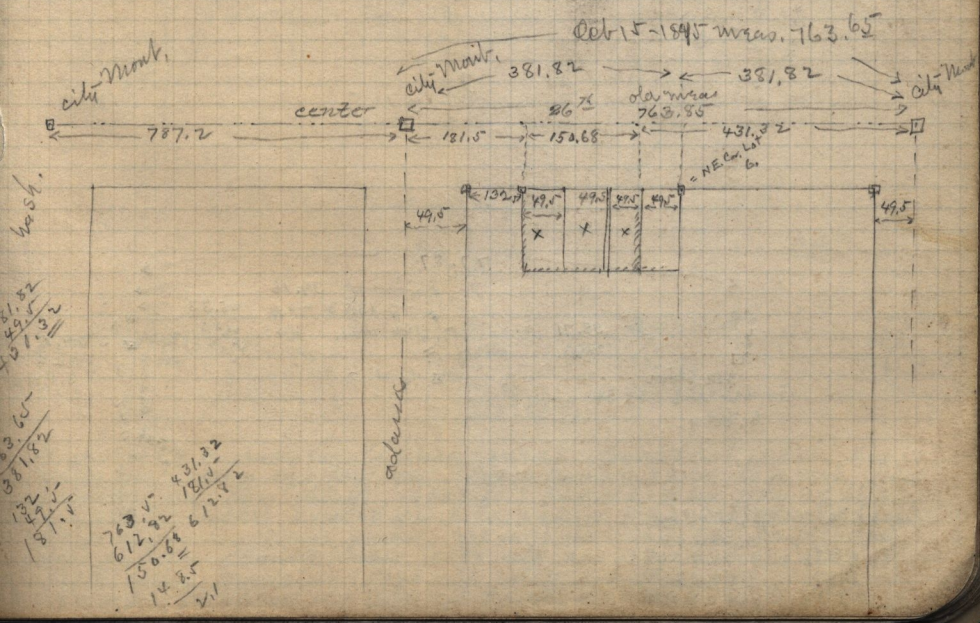 Oct 15-1895 meas. 763.65
city Mont.
city Mont.
381.82
381.82
city Mont
center
26 76
old meas
763.85
787.2
181.5
150.68
431.32
= N.E. Cor. Lot
6.
49.5
132
49.5
49.5
49.5
49.5
49.5
x
x
x
wash.
adams
81.82
49.5
431.32
63.65
381.82
132
49.5
181.5
431.32
181.5
612.82
763.5
612.82
150.68
148.5
2.1